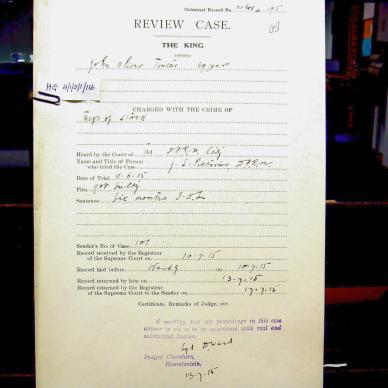 Criminal Record No.
REVIEW CASE.
THE KING
versus
HG 4/1/2/1/116
CHARGED WITH THE CRIME OF
Theft of Stock
Heard by the Court of
Name and Title of Person
who tried the Case
Date of Trial 11-6-15
Plea not guilty
Sentence Six months I.H.L.
Sender's No. of Case 107
Record received by the Registrar
of the Supreme Court on 10-7-15
Record laid before on 10-7-15
Record returned by him on 13-7-15
Record returned by the Registrar
of the Supreme Court to the Sender on 17-7-15
Certificate, Remarks of Judge, etc.
I certify that the proceedings in this case
appear to me to be in accordance with real and
substantial justice.
Judges' Chambers,
Bloemfontein.
13-7-15